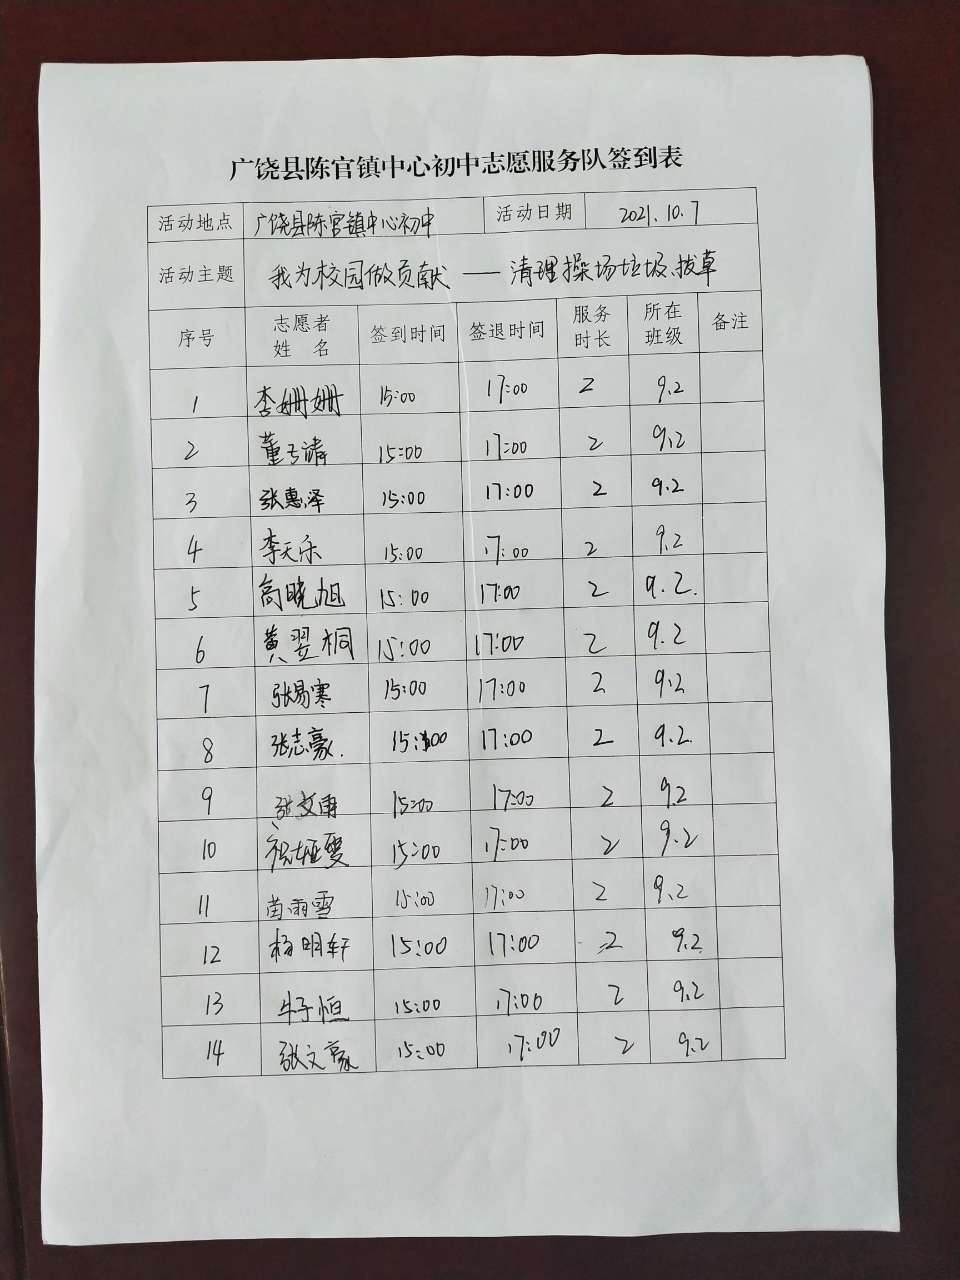 广饶县陈官镇中心初中志愿服务队签到表
活动地点 广饶县陈官镇中心初中 活动日期 2021.10.7
活动主题 我为校园做贡献——清理操场垃圾、拔草
序号 志愿者姓名 签到时间 签退时间 服务时长 所在班级 备注
1 李姗姗 15:00 17:00 2 9.2
2 15:00 17:00 2 9.2
3 张惠泽 15:00 17:00 2 9.2
4 李天乐 15:00 17:00 2 9.2
5 高晓旭 15:00 17:00 2 9.2.
6 黄翌桐 15:00 17:00 2 9.2
7 张易寒 15:00 17:00 2 9.2
8 张志豪. 15:00 17:00 2 9.2.
9 张文雨 15:00 17:00 2 9.2
10 15:00 17:00 2 9.2
11 苗雨雪 15:00 17:00 2 9.2
12 杨明轩 15:00 17:00 2 9.2
13 牛子恒 15:00 17:00 2 9.2
14 张文豪 15:00 17:00 2 9.2